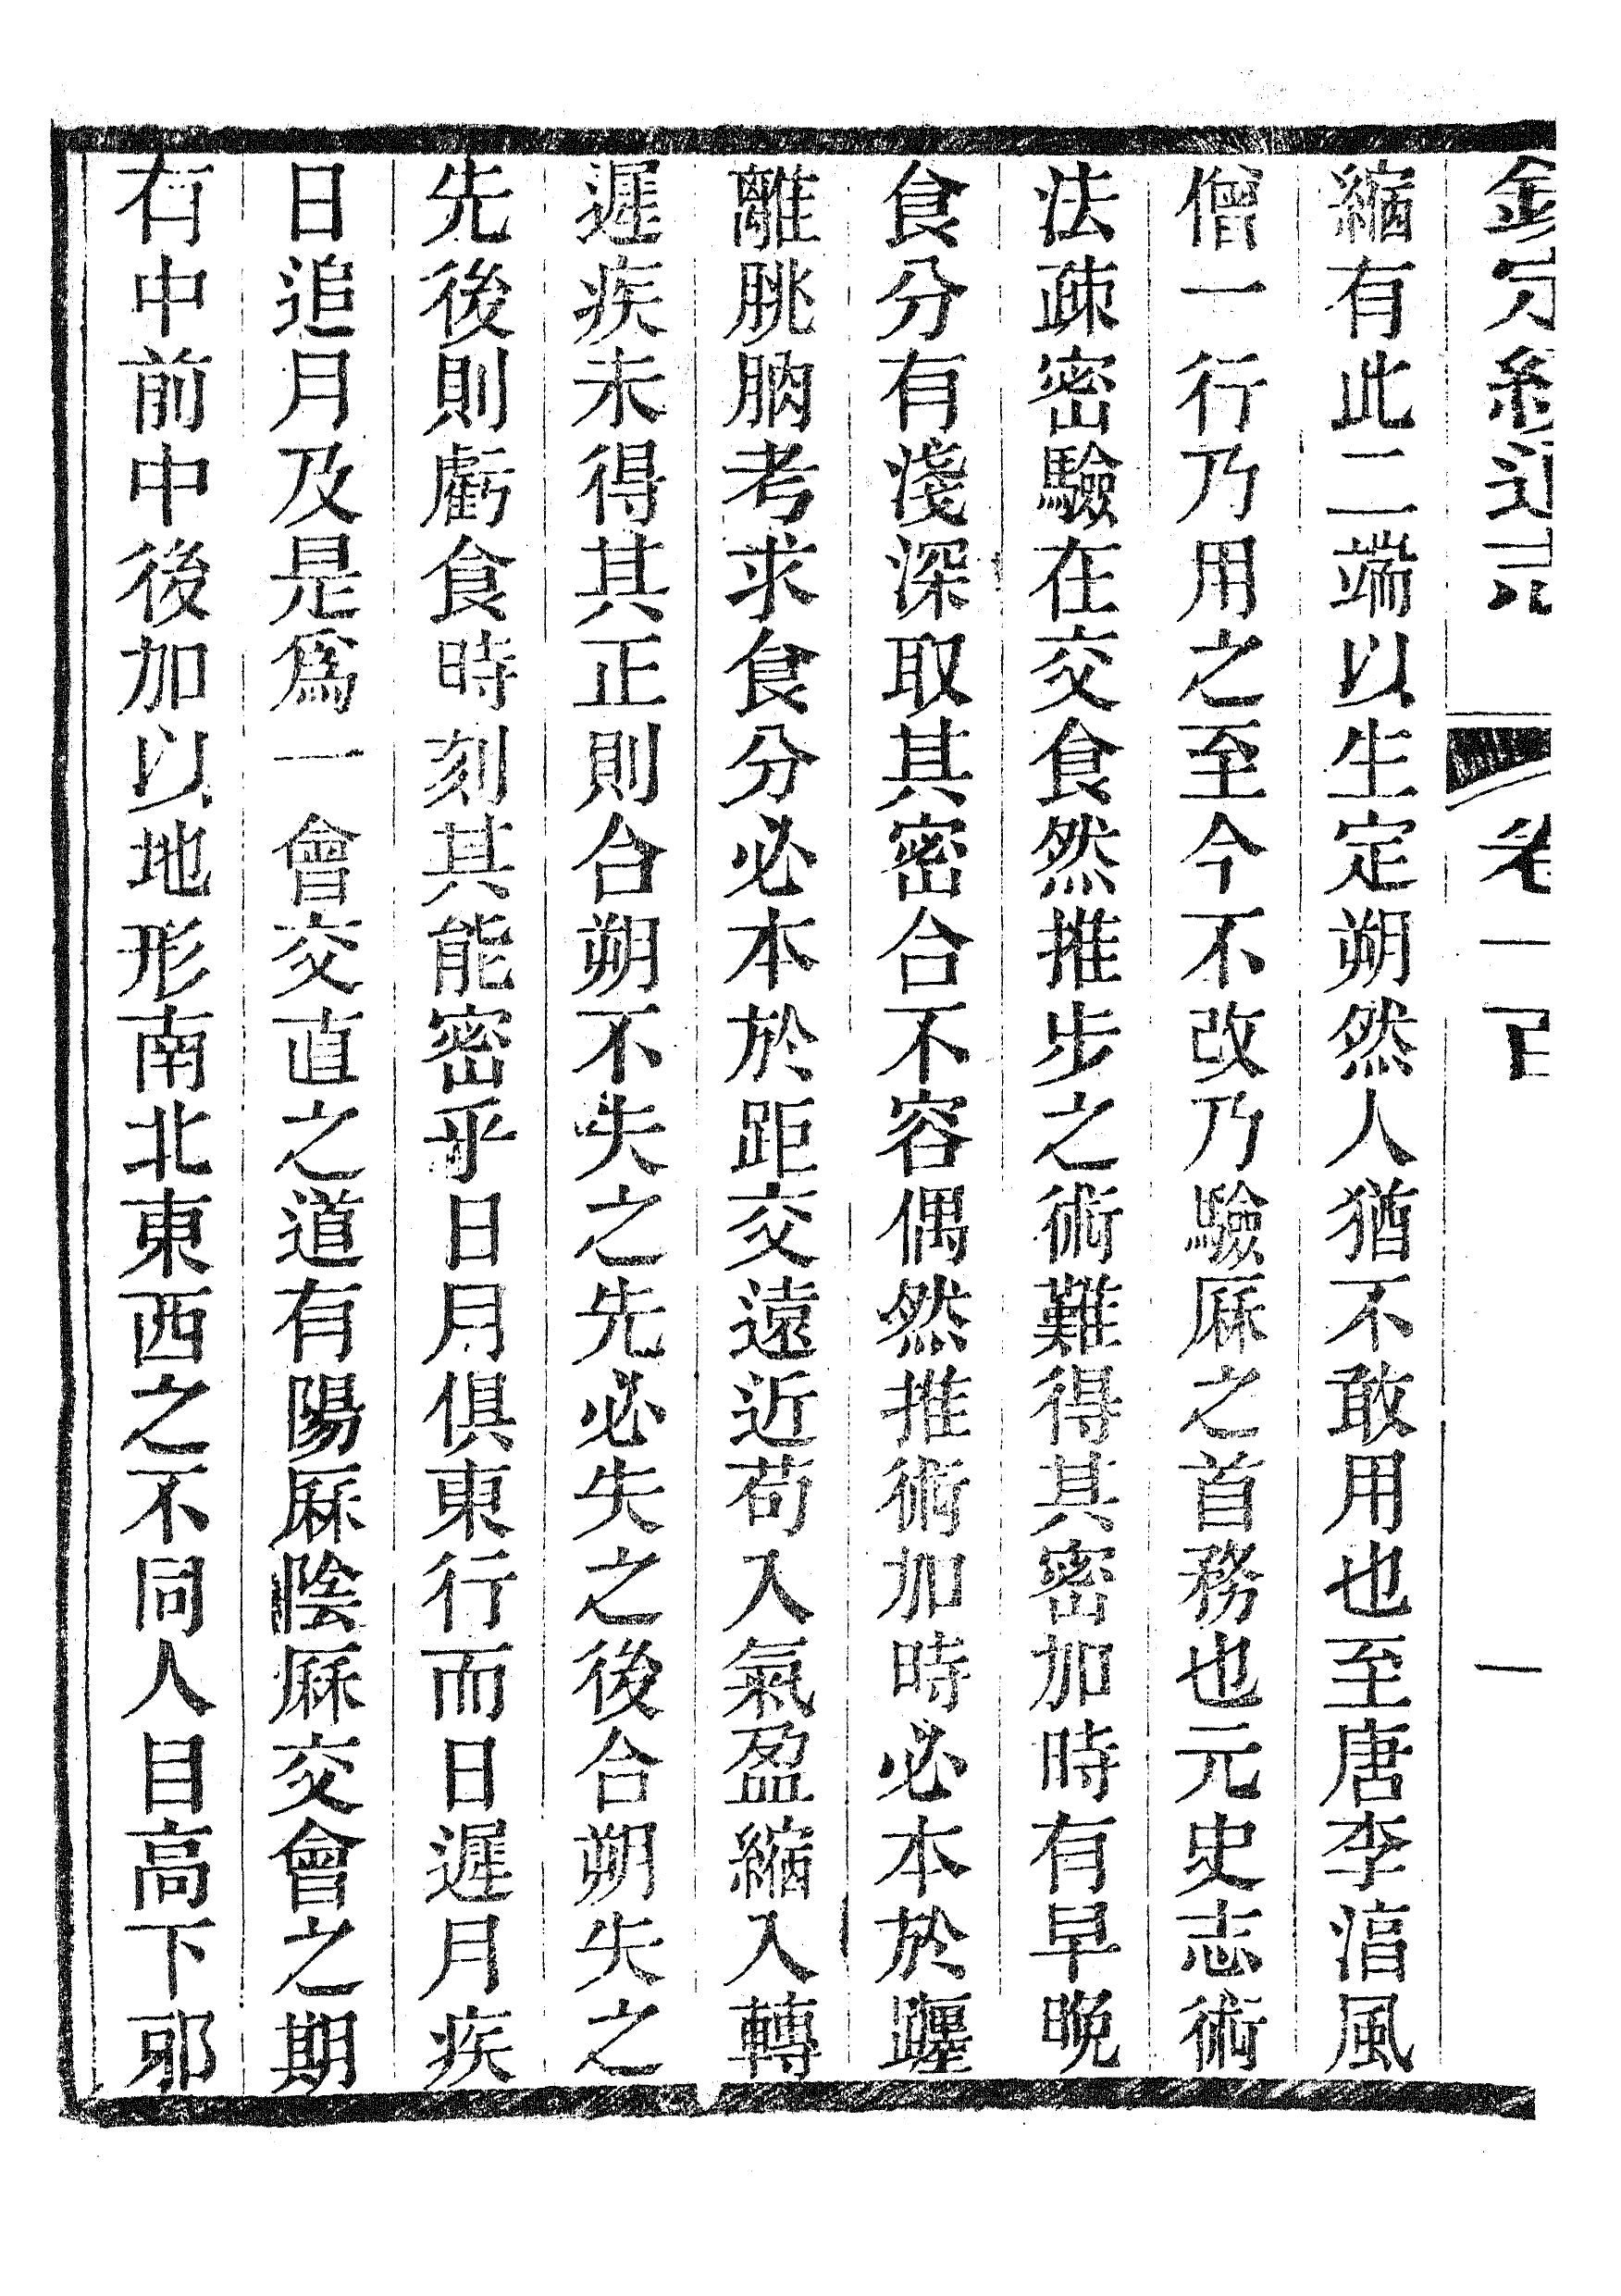 縮有此二端以生定朔然人猶不敢用也至唐李湻風
僧一行乃用之至今不改乃驗厤之首務也元史志術
法疎密驗在交食然推步之術難得其密加時有早晚
食分有淺深取其密合不容偶然推術加時必本於躔
離朓朒考求食分必本於距交遠近苟入氣盈縮入轉
遲疾未得其正則合朔不失之先必失之後合朔失之
先後則虧食時刻其能密乎日月俱東行而日遲月疾
日追月及是爲一會交直之道有陽厤陰厤交會之期
有中前中後加以地形南北東西之不同人目高下邪